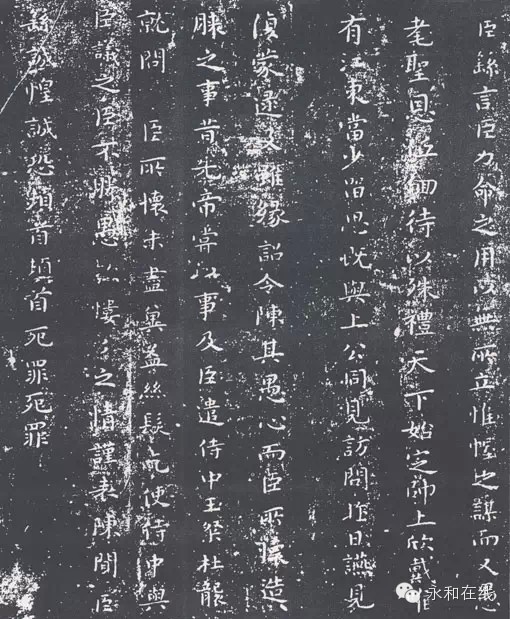 臣繇言臣力命之用以無所立惟幄之謀而又愚
耄聖恩低佪待以殊禮天下始定帥土欣戴唯
有江東當少留思既與上公同見訪問昨日讌見
復蒙逮及雖緣詔令陳其愚心而臣所懷造
膝之事昔先帝嘗以事及臣遣侍中王粲杜襲
就問臣所懷未盡奚益絲髮乞使侍中與
臣議之臣不勝愚款慺慺之情謹表陳聞臣
繇誠惶誠恐頓首頓首死罪死罪
永和在线